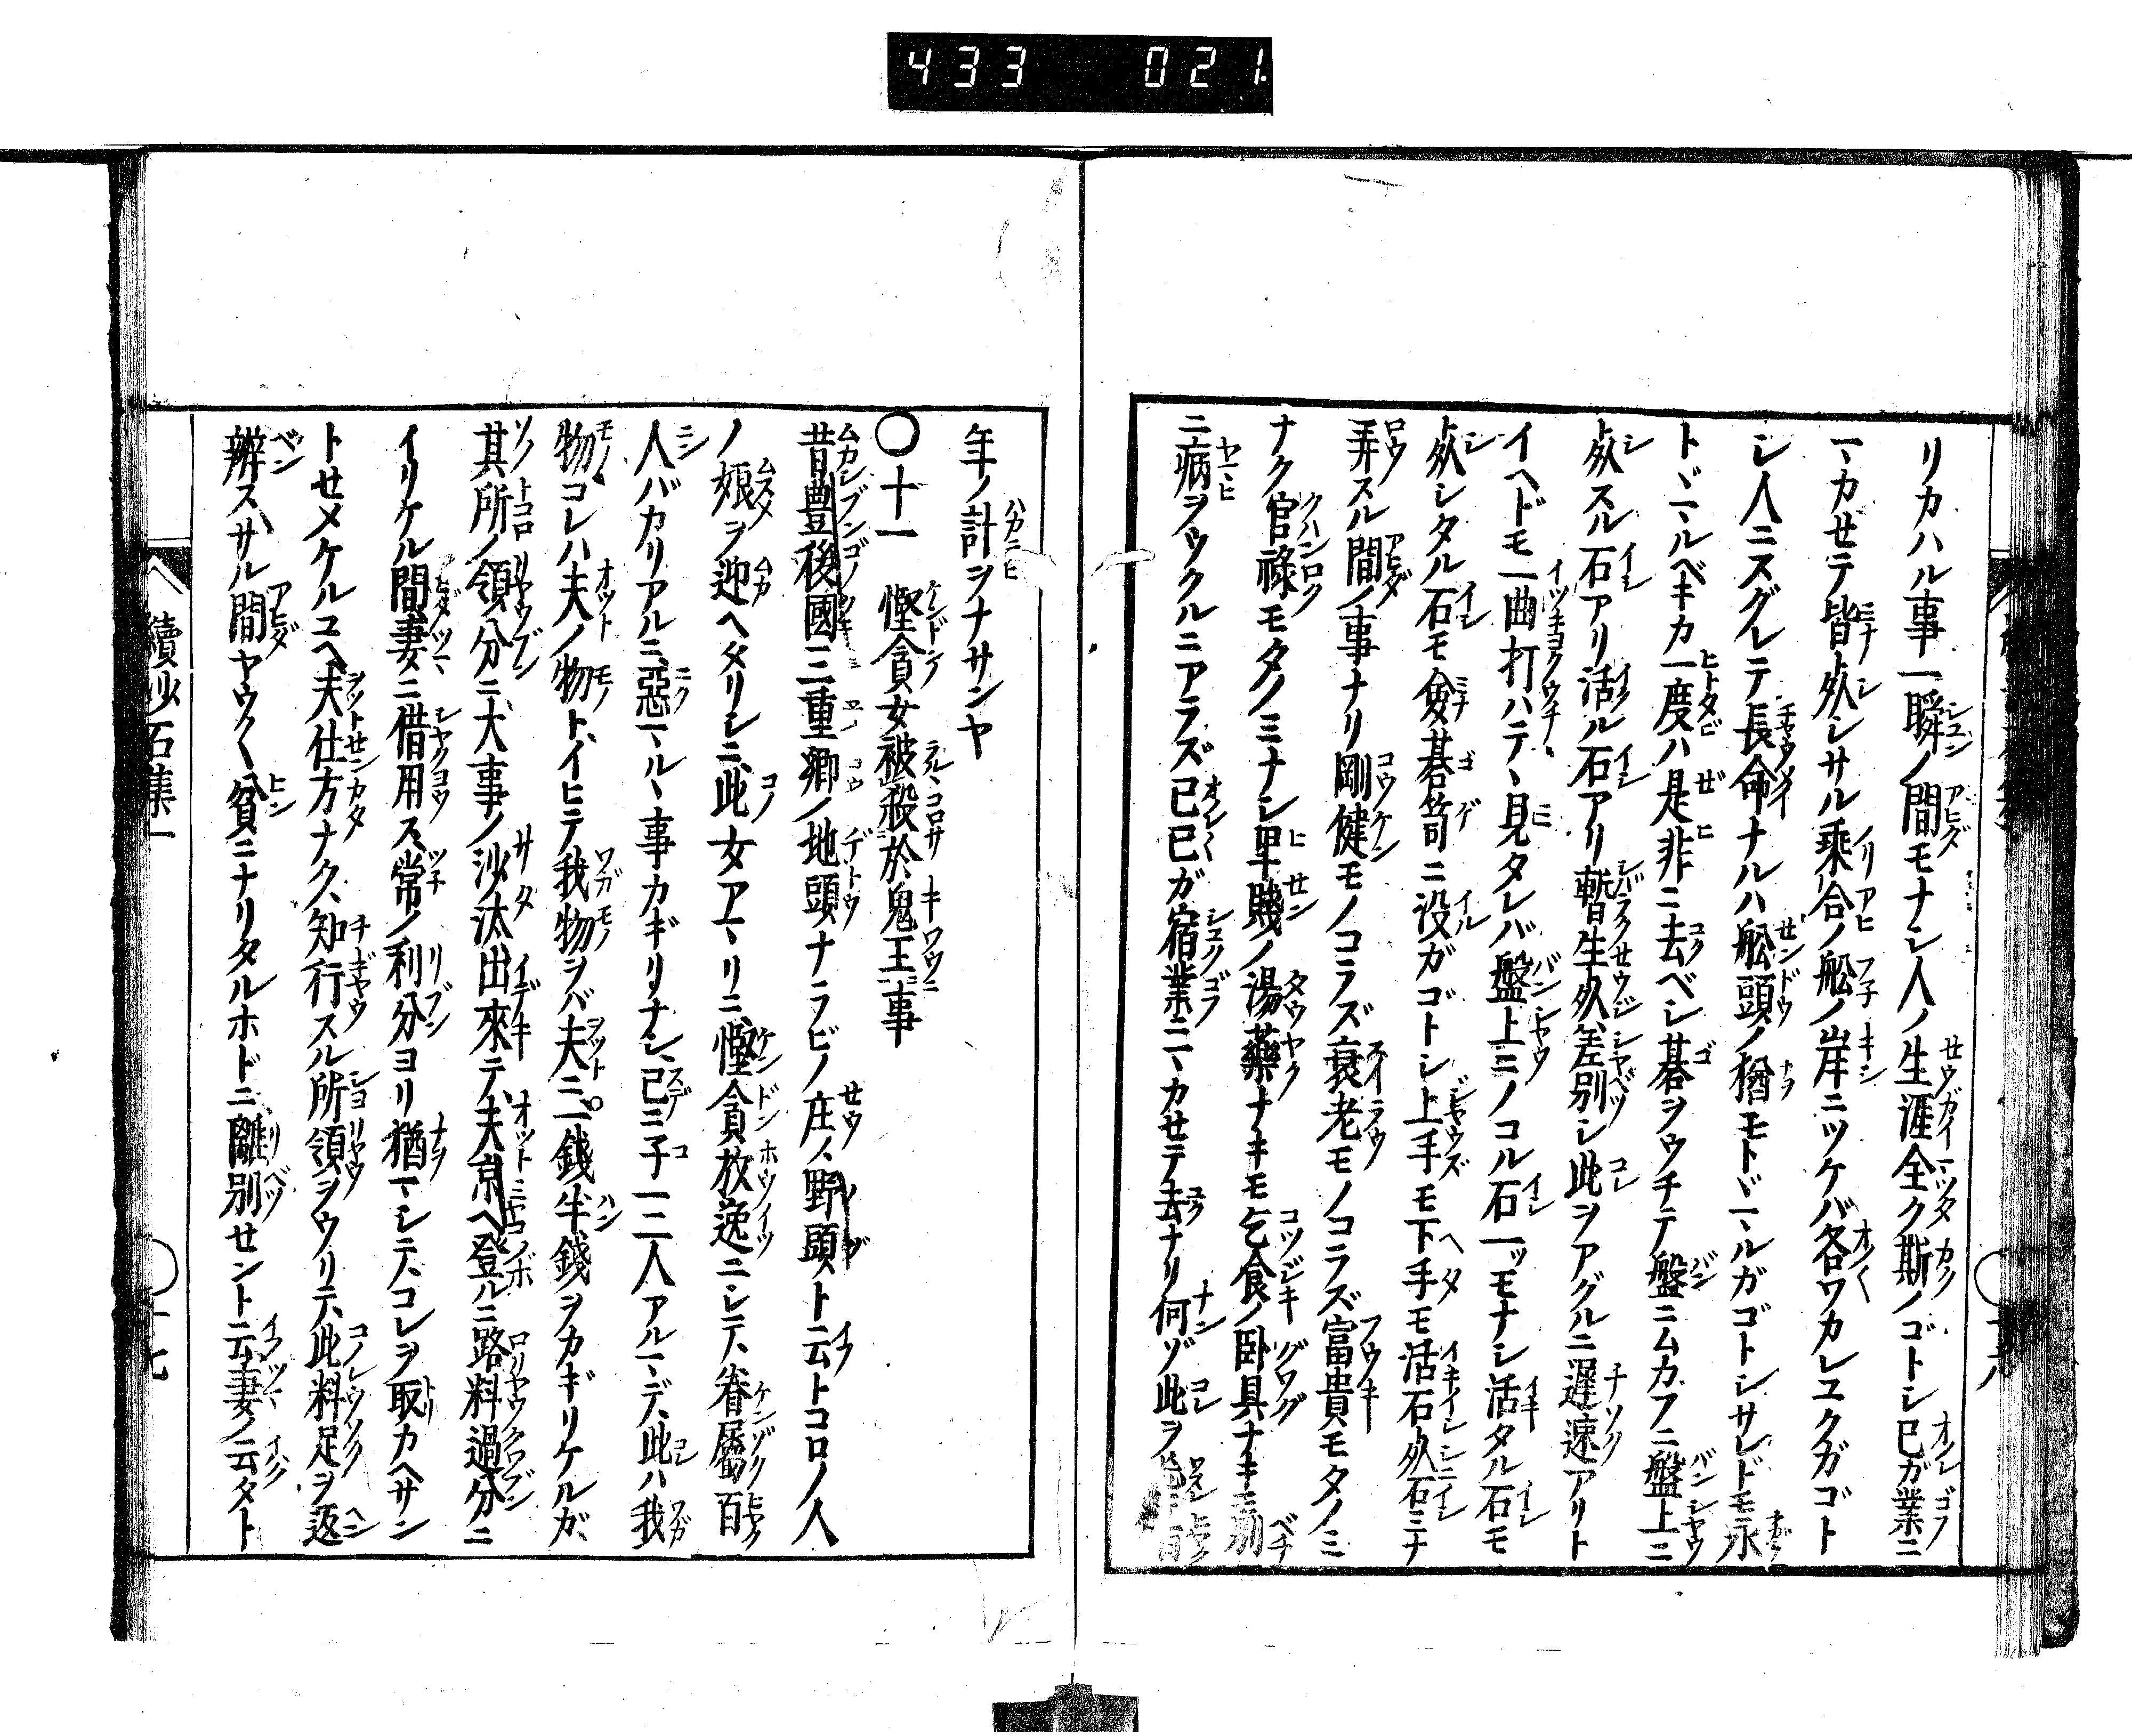 433 021
リカハル事一瞬ノ間モナシ人ノ生涯全ク斯ノゴトシ已ガ業ニ
マカセテ皆死シサル乘合ノ舩ノ岸ニツケバ各ワカレユクガゴト
シ人ニスグレテ長命ナルハ舩頭ノ楫モトヾマルガゴトシサレドモ永
トヾマルベキカ一度ハ是非ニ去ベシ碁ヲウチテ盤ニムカフニ盤上ニ
死スル石アリ活ル石アリ暫生死差別シ此ヲアグルニ遲速アリト
イヘドモ一曲打ハテヽ見タレバ盤上ミノコル石一ツモナシ活タル石モ
死シタル石モ僉碁笥ニ没ガゴトシ上手モ下手モ活石死石ミナ
弄スル間ノ事ナリ剛健モノコラズ衰老モノコラズ富貴モタノミ
ナク官祿モタノミナシ卑賤ノ湯藥ナキモ乞食ノ卧具ナキモ別
ニ病ヲウクルニアラズ已已ガ宿業ニマカセテ去ナリ何ゾ此ヲ
年ノ計ヲナサンヤ
〇十一 慳貪女被殺於鬼王事
昔豊後國三重郷ノ地頭ナラビノ庄ノ野頭ト云トコロノ人
ノ娘ヲ迎ヘタリシニ此女アマリニ慳貪放逸ニシテ眷屬百
人バカリアルミ惡マルヽ事カギリナシ已ニ子一二人アルマデ此ハ我
物コレハ夫ノ物トイヒテ我物ヲバ夫ニ一錢半錢ヲカギリケルガ
其所ノ領分ニ大事ノ沙汰出來テ夫京ヘ登ルニ路料過分ニ
イリケル間妻ニ借用ス常ノ利分ヨリ猶マシテコレヲ取カヘサン
トセメケルユヘ夫仕方ナク知行スル所領ヲウリテ此料足ヲ返
辨スサル間ヤウ〱貧ニナリタルホドニ離別セント云妻ノ云タト
續沙石集一